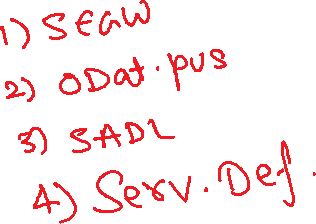 1) SEGW
2) ODat.pus
3) SADL
4) Serv. Def.